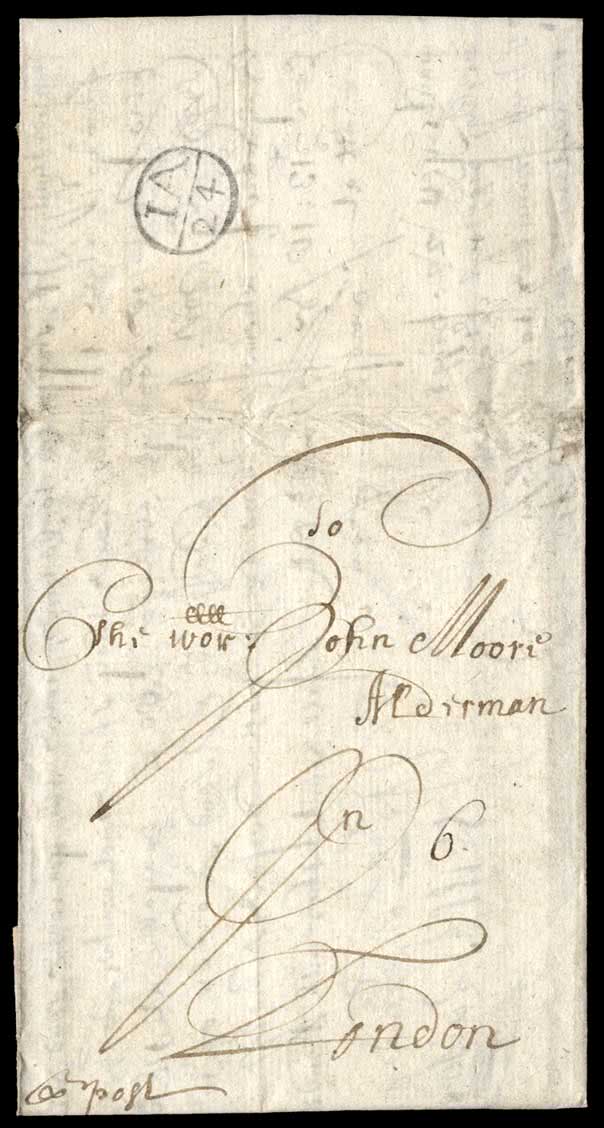 IA
24
To
The wor: John Moore
Alderman
In
6
London
post